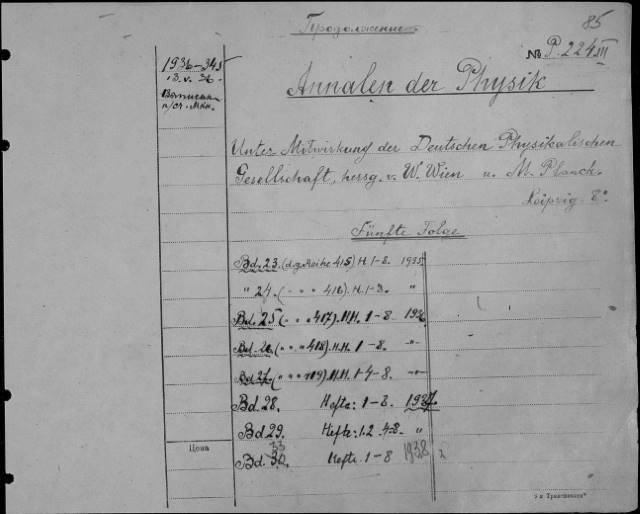 Продолжение
85
№ P. 224 III
1936–345
13.V.36.
Annalen der Physik
Unter Mitwirkung der Deutschen Physikalischen
Gesellschaft, hersg. v. W. Wien u. M. Planck.
Leipzig. 8°
Fünfte Folge
Bd. 23. (d.g. Reihe 415) H. 1-8. 1935
" 24. ( " " " 416). H. 1-3. "
Bd. 25 ( " " " 417). H.H. 1-8. 1936
( " " " 418). H.H. 1-8. "
Bd. 27. ( " " " 419). H.H. 1-4-8. "
Bd. 28. Hefte: 1-8. 1937.
Bd 29. Hefte: 1.2. 4-8. "
33
Bd. 30. Hefte 1-8 1938
Цена